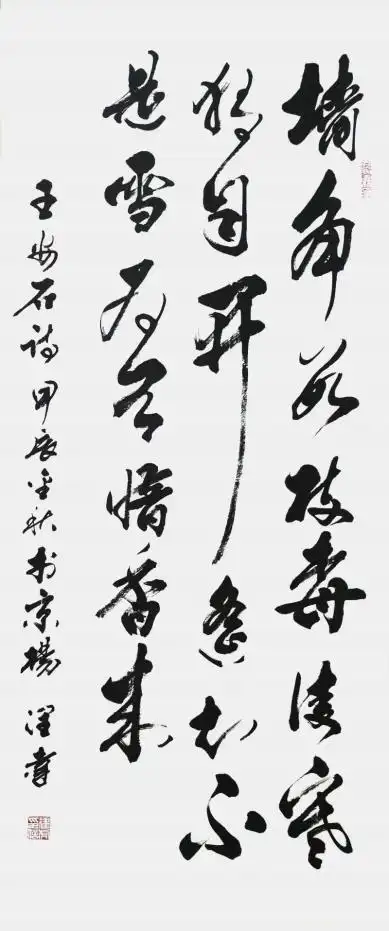 墙角数枝梅凌寒
独自开遥知不
是雪为有暗香来
王安石诗甲辰金秋于京杨